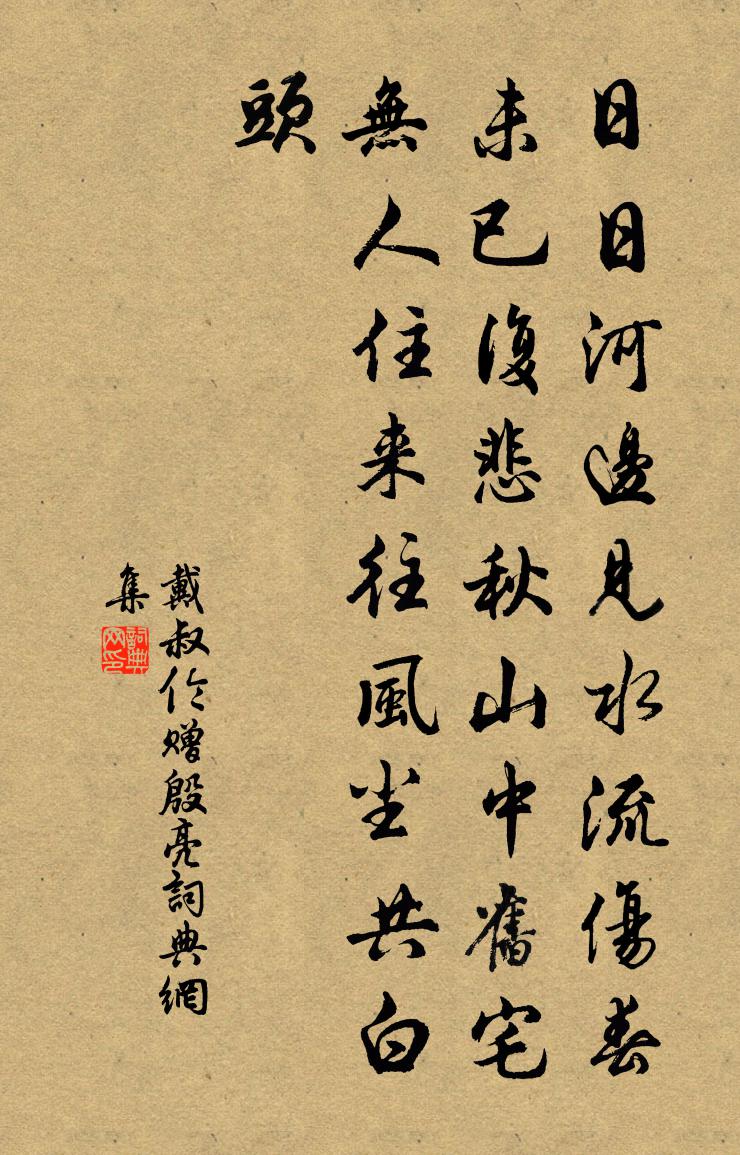 日日河邊見水流傷春
未已復悲秋山中舊宅
無人住来往風尘共白
頭
戴叔伦赠殷亮詞典網
集
詞典网印